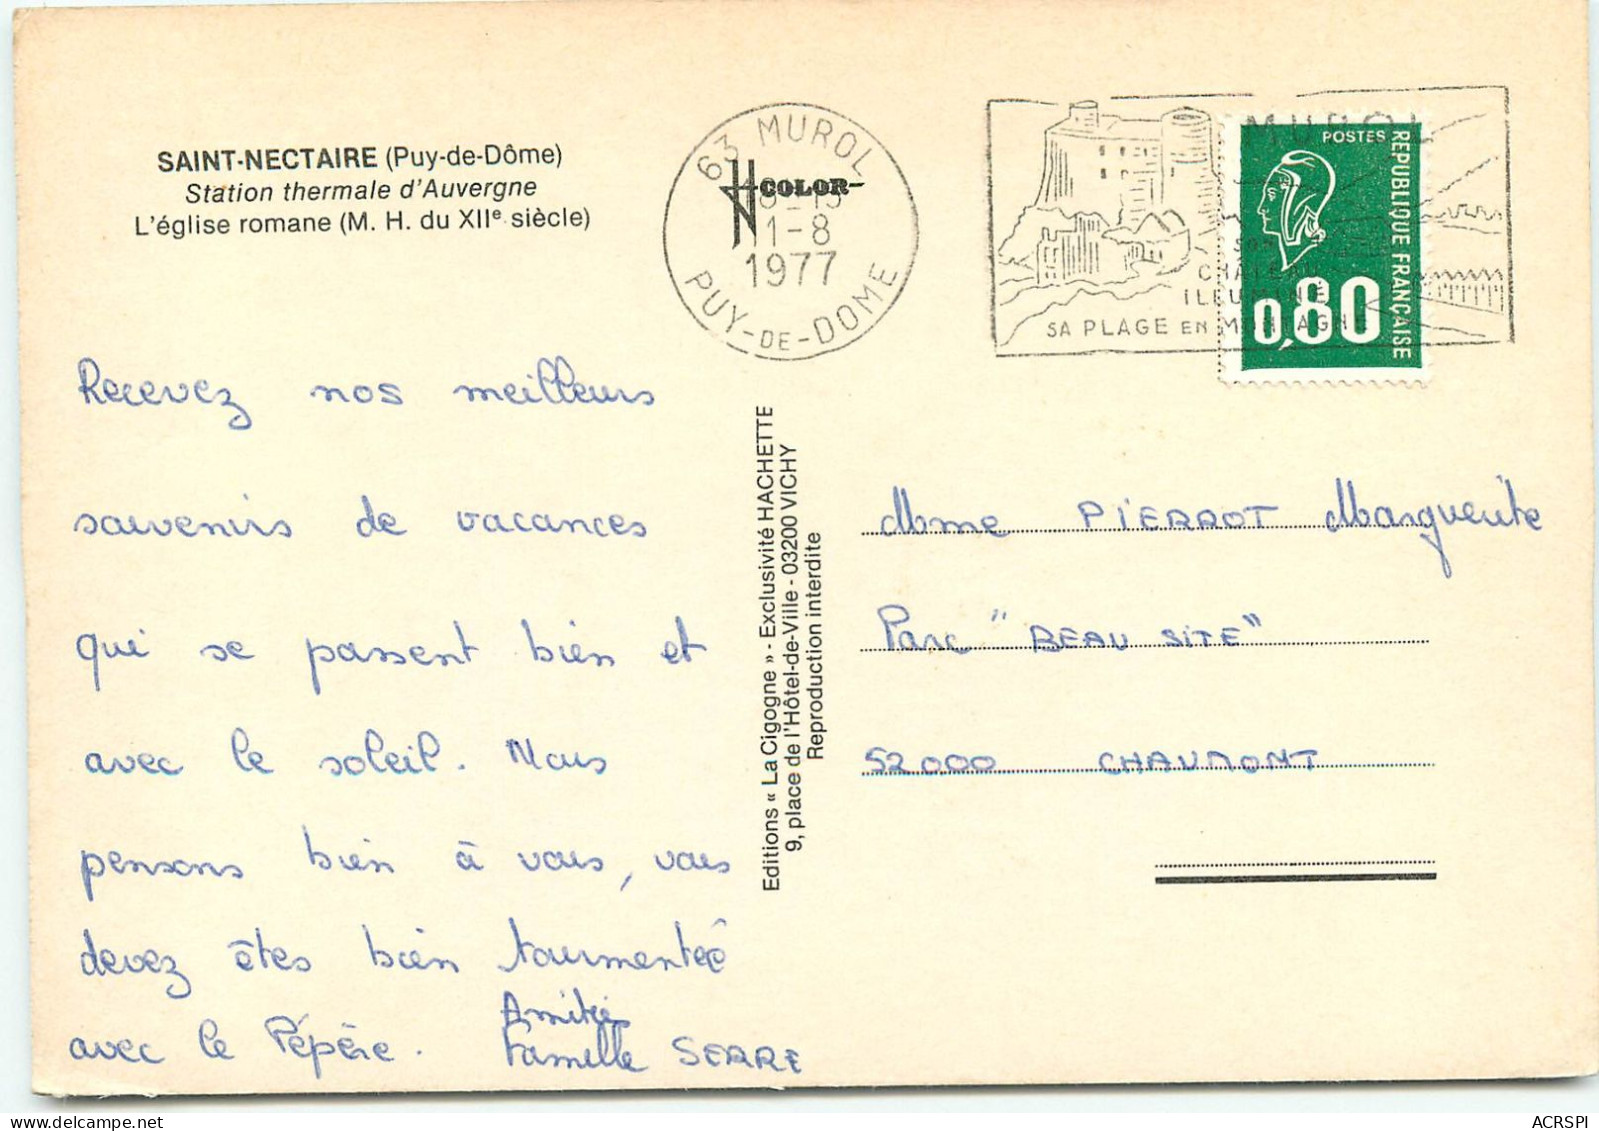 SAINT-NECTAIRE (Puy-de-Dôme)
Station thermale d'Auvergne
L'église romane (M. H. du XIIe siècle)
63 MUROL
COLOR
11-8
1977
PUY-DE-DOME
MUROL
SON
CHÂTEAU
ILLUMINÉ
SA PLAGE EN MONTAGNE
POSTES
REPUBLIQUE FRANÇAISE
0,80
Recevez nos meilleurs
souvenirs de vacances
qui se passent bien et
avec le soleil. Nous
pensons bien à vous, vous
devez êtes bien tourmentée
avec le Pépère.
Amitié
Famille SERRE
Editions « La Cigogne » - Exclusivité HACHETTE
9, place de l'Hôtel-de-Ville - 03200 VICHY
Reproduction interdite
Mme PIERROT Marguerite
Parc "BEAU SITE"
52000 CHAUMONT
ACRSPI